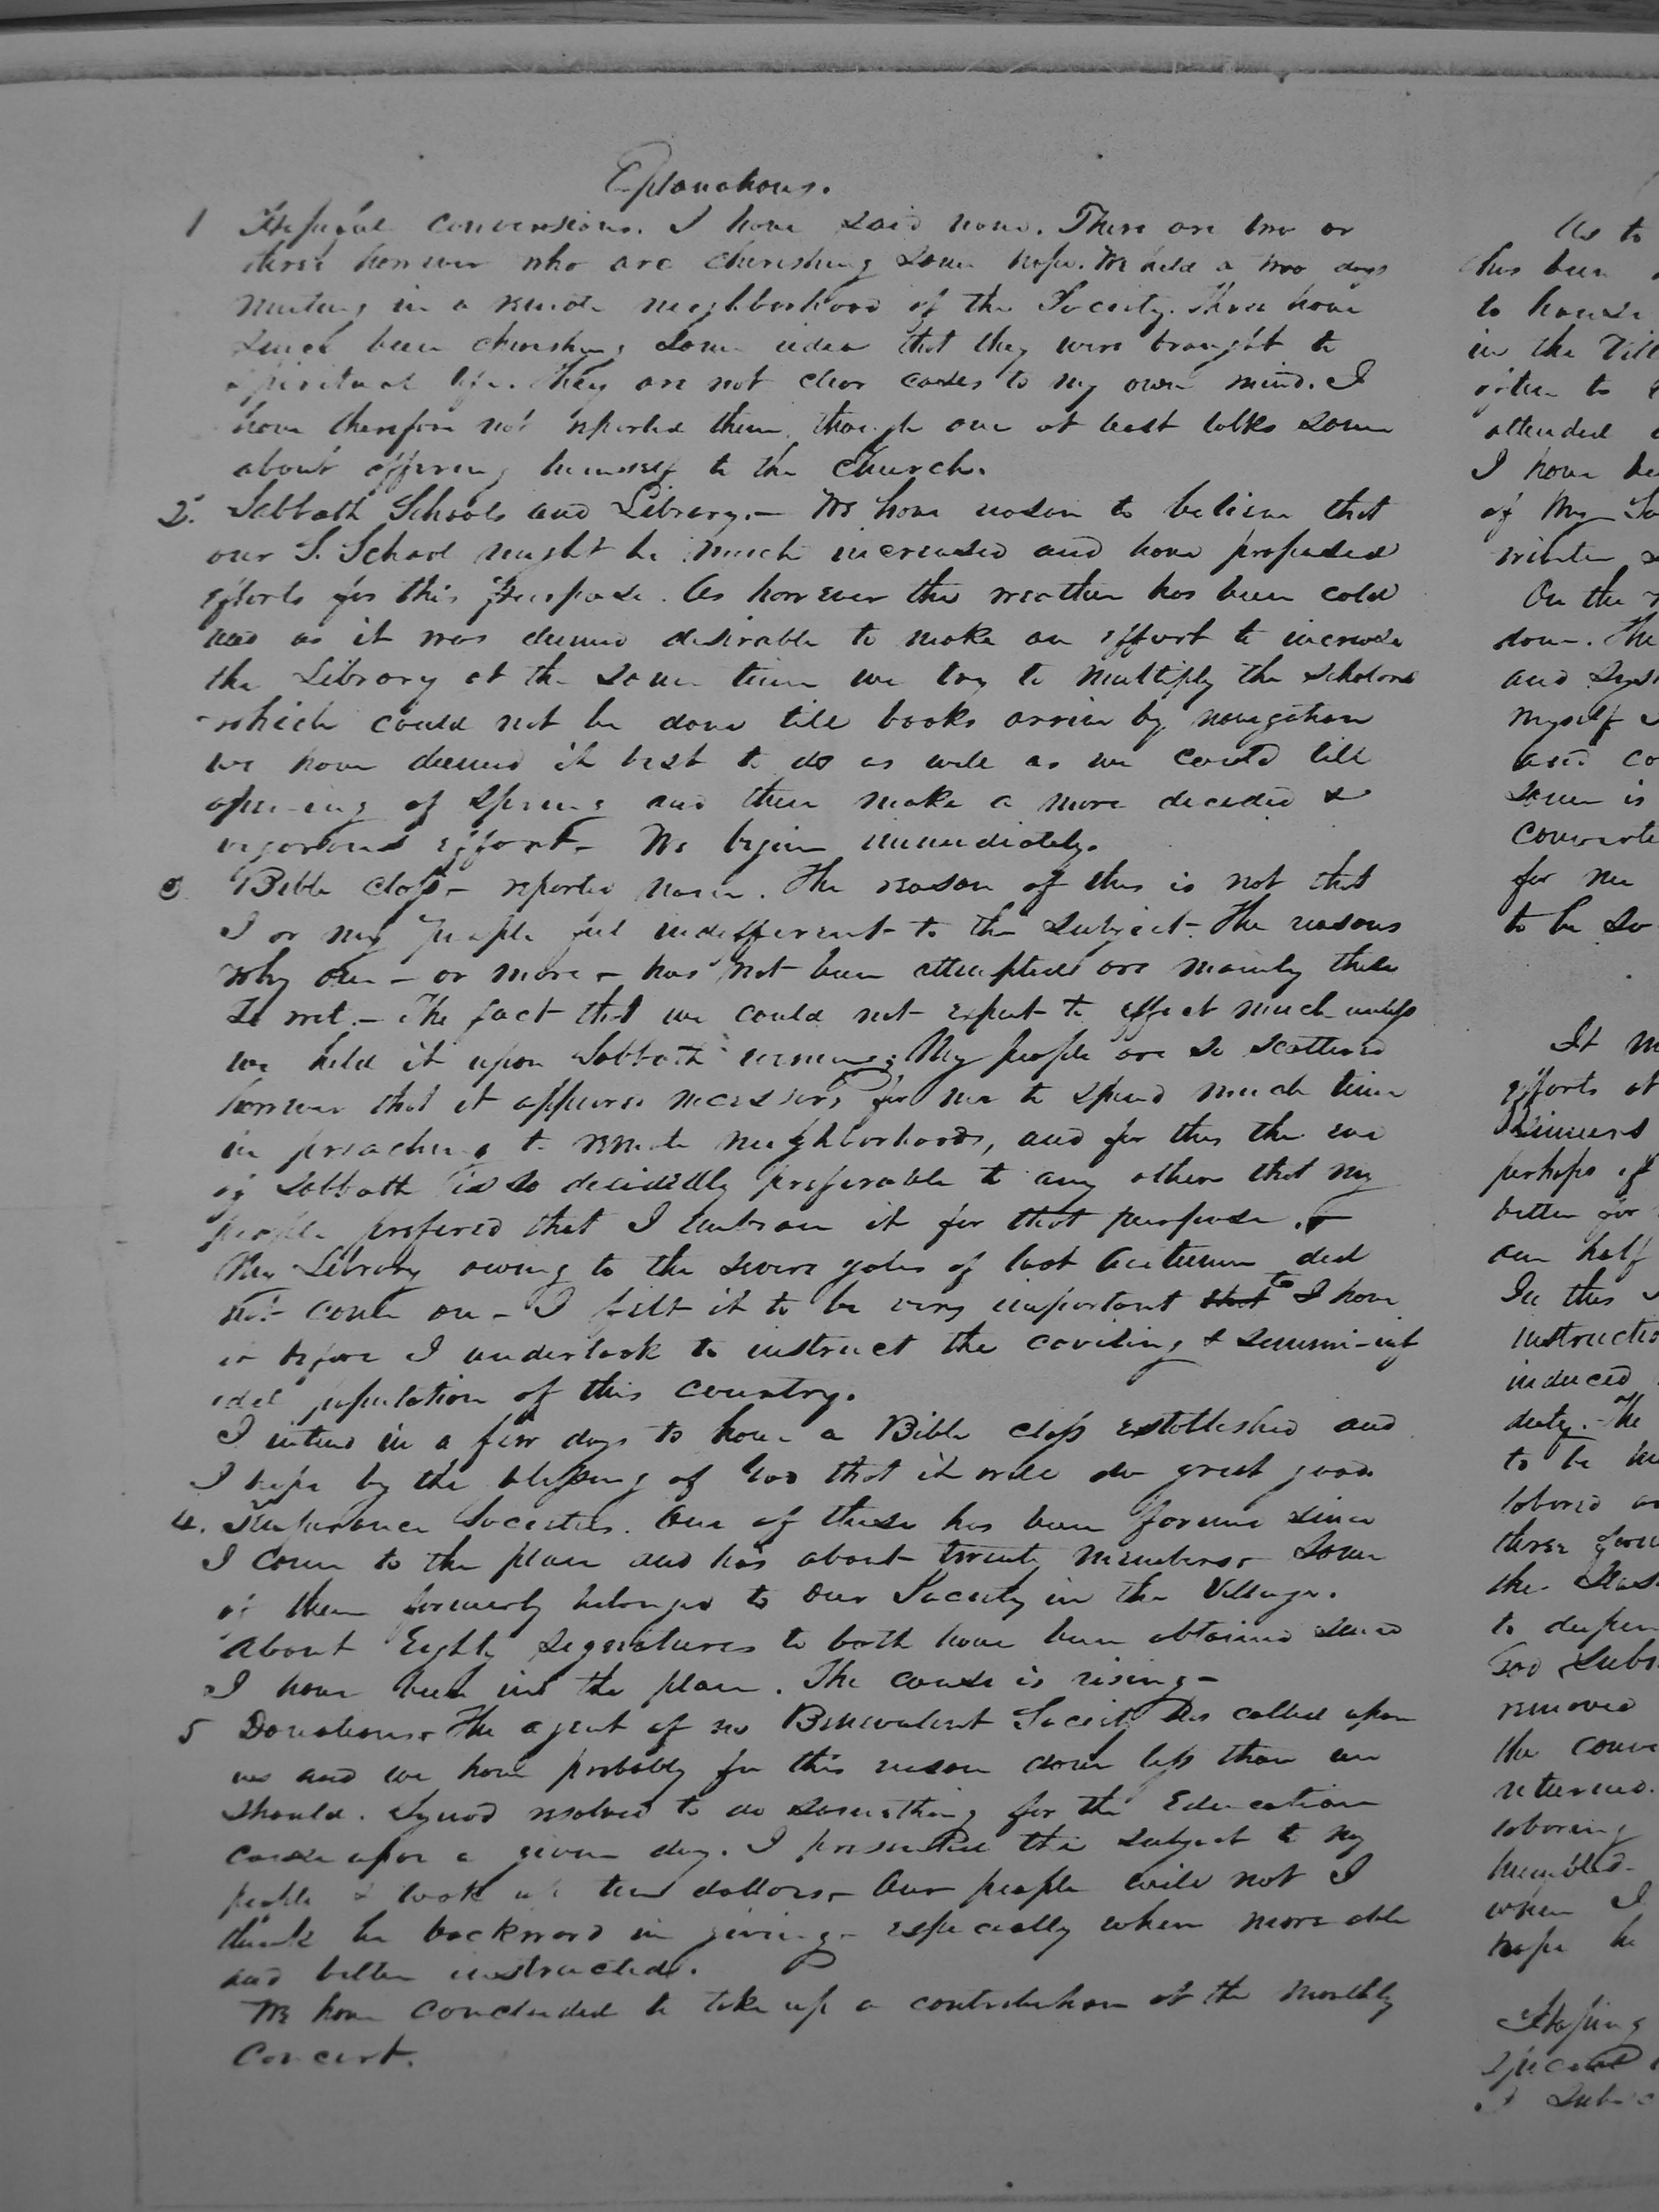 Explanations.
1 Hopeful conversions. I have said none. There are two or
three however who are cherishing some hope. We held a two days
meeting in a remote neighborhood of the Society. Three have
since been cherishing some idea that they were brought to
spiritual life. They are not clear cases to my own mind. I
have therefore not reported them, though one at least talks some
about offering himself to the Church.
2. Sabbath Schools and Library. – We have reason to believe that
our S. School might be much increased and have proposed
efforts for this purpose. As however the weather has been cold
and as it was deemed desirable to make an effort to increase
the Library at the same time we try to multiply the scholars
which could not be done till books arrive by navigation
we have deemed it best to do as well as we could till
opening of Spring and then make a more decided &
vigorous effort – We begin immediately.
3 Bible class – reported none. The reason of this is not that
I or my people feel indifferent to the subject – The reasons
why one – or more – has not been attempted are mainly these
to wit. – The fact that we could not expect to effect much unless
we held it upon Sabbath evening. My people are so scattered
however that it appeared necessary for me to spend much time
in preaching to remote neighborhoods, and for this the eve
of Sabbath is so decidedly preferable to any other that my
people prefered that I embrace it for that purpose. –
My Library owing to the severe gales of last Autumn did
not come on – I felt it to be very important that to I have
it before I undertook to instruct the caviling & semmi-inf
idel population of this country.
I intend in a few days to have a Bible class established and
I hope by the blessing of God that it will do great good.
4. Temperance Societies. One of these has been formed since
I came to the place and has about twenty members – Some
of them formerly belonged to our Society in the Village.
About Eighty signatures to both have been obtained since
I have been in the place. The cause is rising –
5 Donations – The agent of no Benevolent Society has called upon
us and we have probably for this reason done less than we
should. Synod resolved to do something for the Education
cause upon a given day. I presented the subject to my
people & took up ten dollars – Our people will not I
think be backward in giving – especially when more able
and better instructed.
We have concluded to take up a contribution at the monthly
Concert.
As to
has been
to house
in the Vill
often to
attended
I have be
of My
winter
On the
done. The
and
myself
and co
some is
converte
for me
to be so
It m
efforts at
Sinners
perhaps if
better for
one half
In this
instructio
induced
duty. – The
to be
labored
three
the
to deepen
God
removed
the conve
returned.
laboring
humbled –
when I
hope he
Hoping
special
I